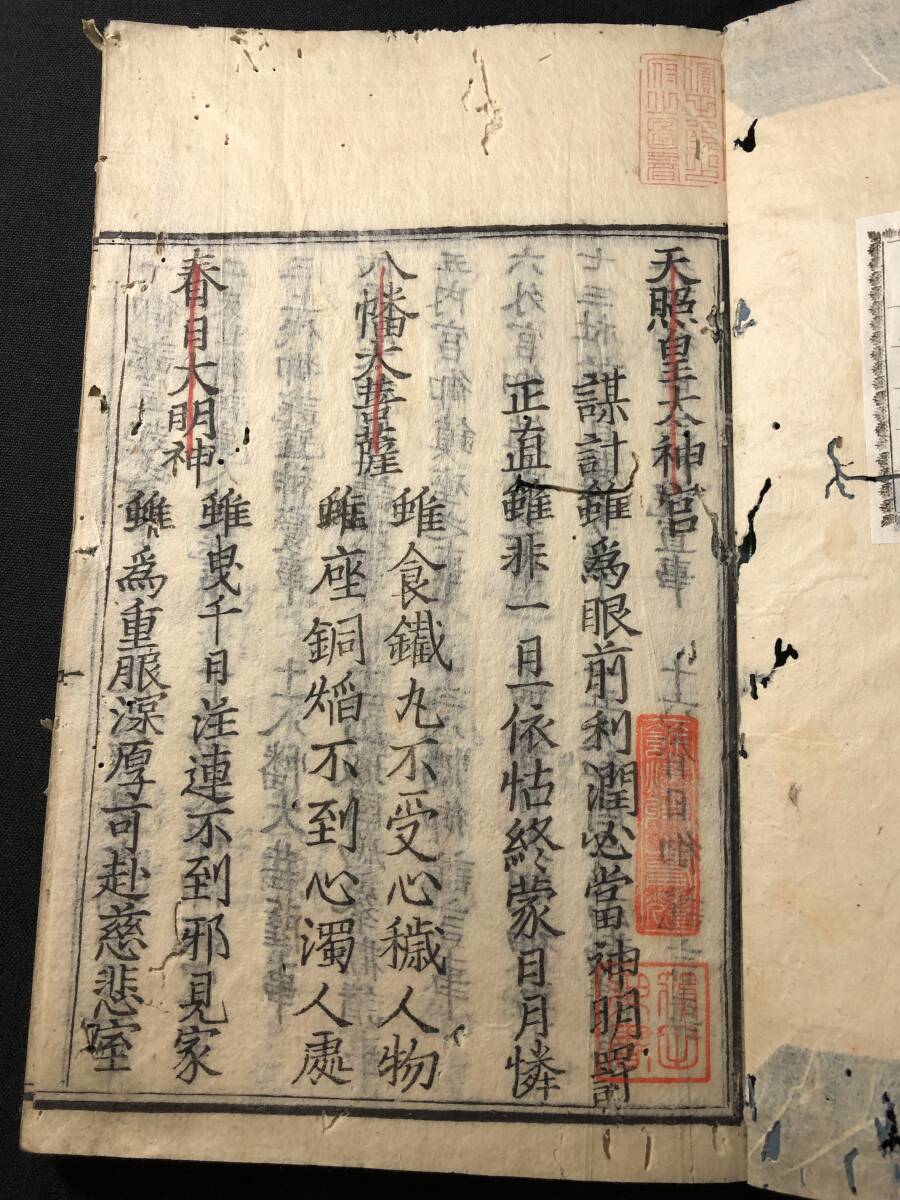 天照皇太神宮
謀計雖爲眼前利潤必當神明罸
正直雖非一旦依怙終蒙日月憐
八幡大菩薩
雖食鐵丸不受心穢人物
雖座銅焰不到心濁人處
春日大明神
雖曳千日注連不到邪見家
雖爲重服深厚可赴慈悲室